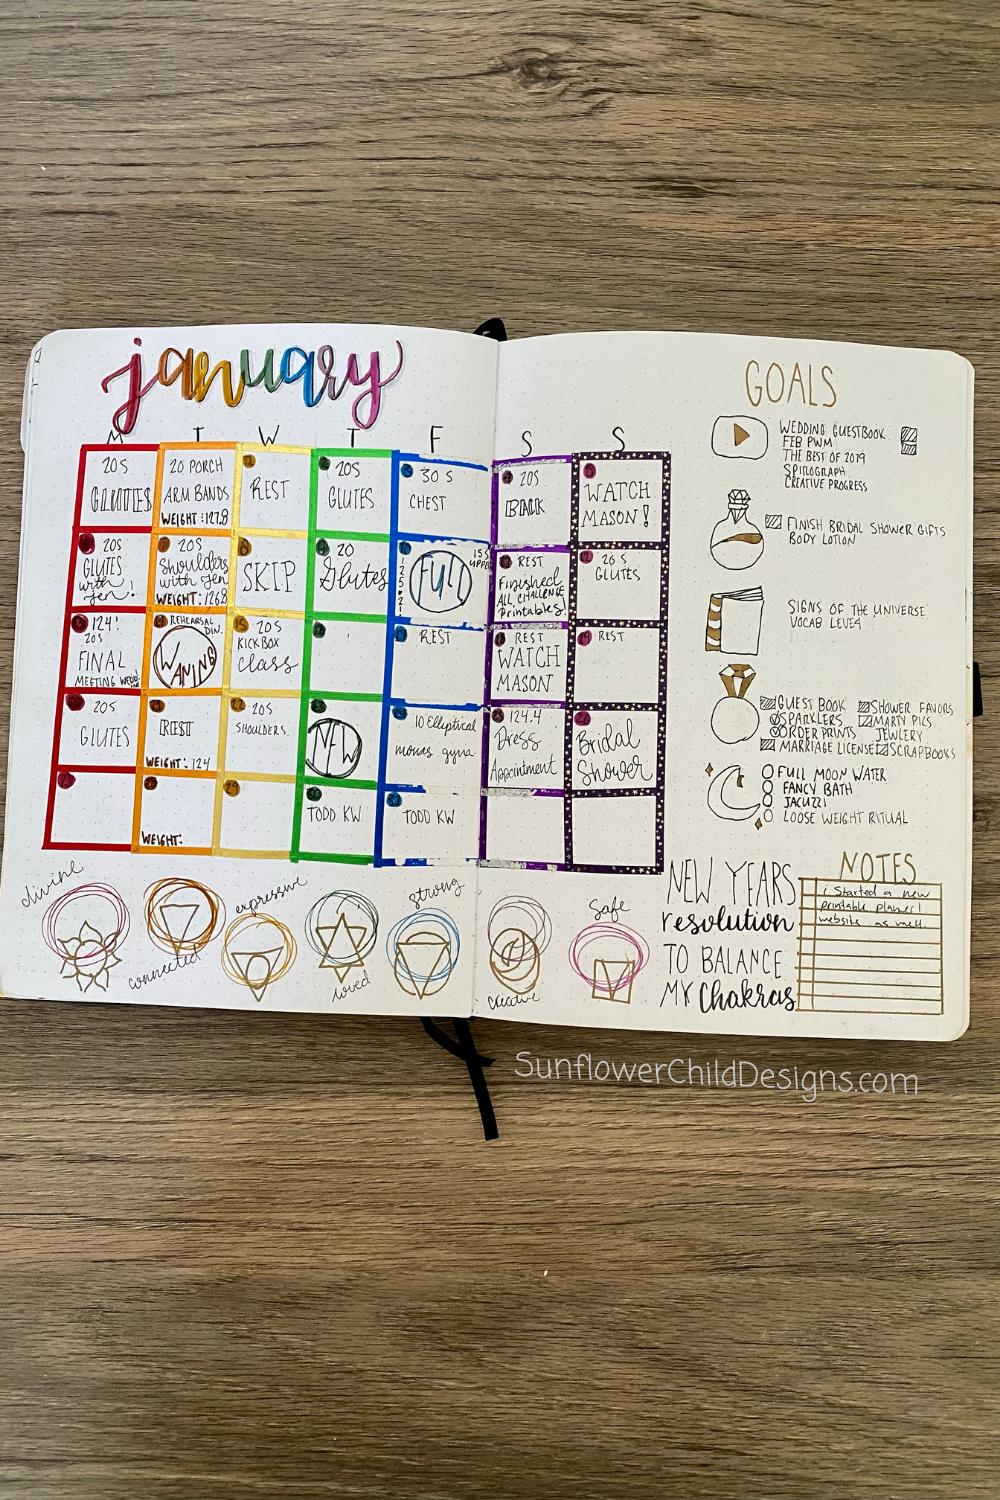 january
M T W T F S S
20 S
GLUTES
20 PORCH
ARM BANDS
WEIGHT: 127.8
1
REST
2 20S
GLUTES
3 30 S
CHEST
4 20S
BACK
5
WATCH
MASON!
6 20S
GLUTES
with
Jen!
7 20S
Shoulders
with Jen
WEIGHT: 126.8
8
SKIP
9 20
Glutes
10
125.2!
FULL
15 S
11 REST
Finished
ALL CHALLENGE
Printables!
12 20 S
GLUTES
13 124!
20S
FINAL
MEETING
14 REHEARSAL
DIN.
WANING
15 20S
KICKBOX
class
17 REST
18 REST
WATCH
MASON
19 REST
20 20S
GLUTES
21
REST
WEIGHT: 124
22 20S
SHOULDERS
23
NEW
24 10 Elliptical
25 124.4
Dress
Appointment
26
Bridal
Shower
27
28
WEIGHT:
29
30
TODD KW
31
TODD KW
GOALS
WEDDING GUESTBOOK
FEB PWM
THE BEST OF 2019
SPIROGRAPH
CREATIVE PROGRESS
FINISH BRIDAL SHOWER GIFTS
BODY LOTION
SIGNS OF THE UNIVERSE
VOCAB LEVE4
GUEST BOOK SHOWER FAVORS
SPARKLERS MARTY PICS
ORDER PRINTS JEWLERY
MARRIAGE LICENSE SCRAPBOOKS
FULL MOON WATER
FANCY BATH
JACUZZI
LOOSE WEIGHT RITUAL
divine
connected
expressive
loved
strong
creative
safe
NEW YEARS
resolution
TO BALANCE
MY Chakras
NOTES
i started a new
printable planner!
website as well.
SunflowerChildDesigns.com